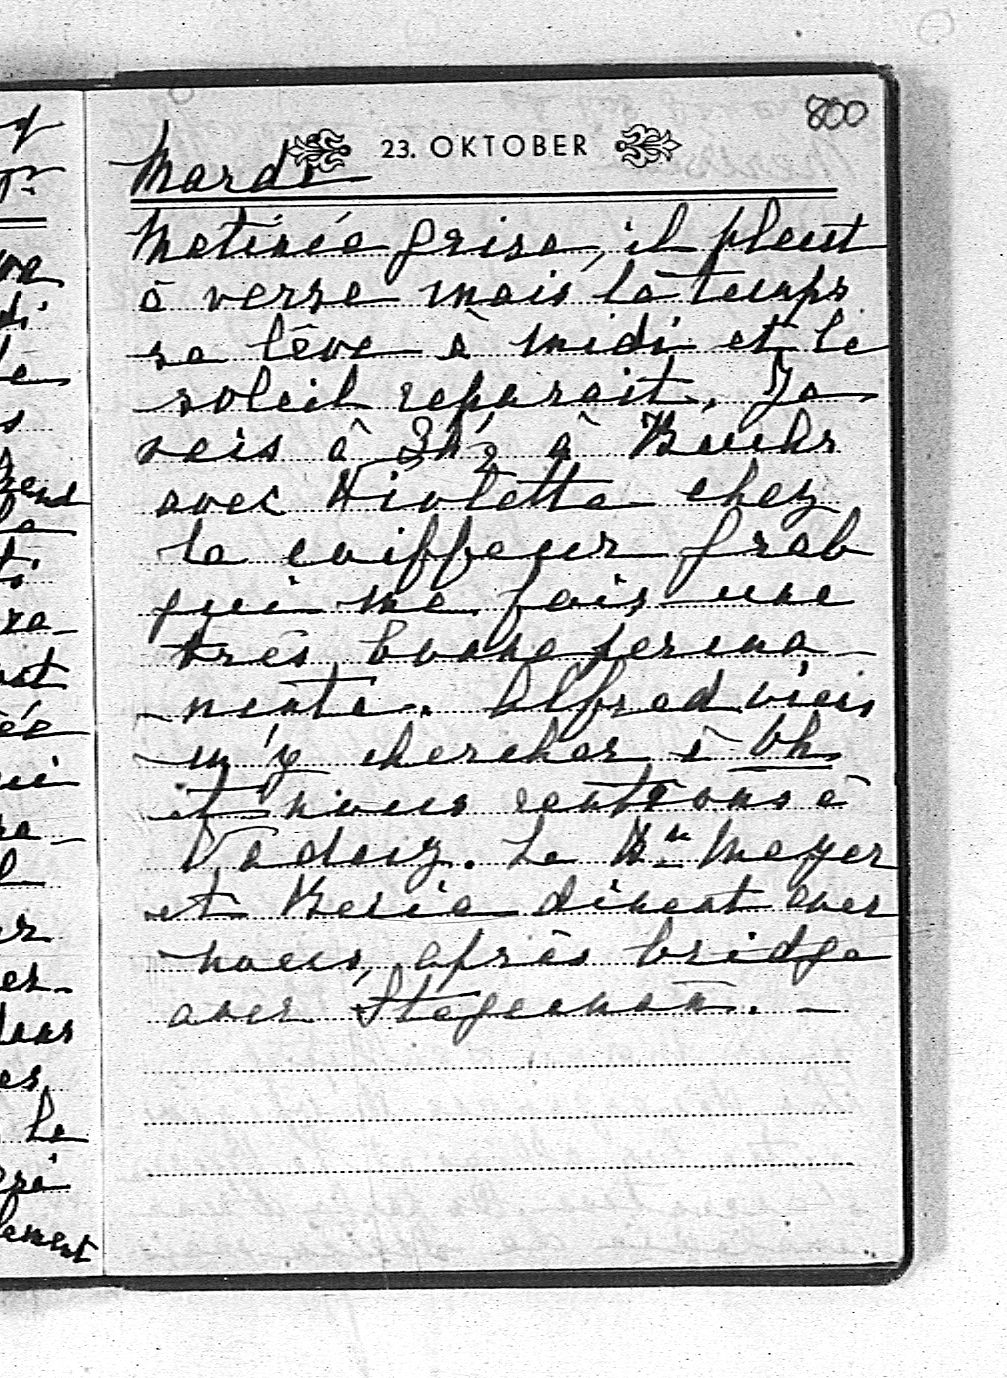 800
23. OKTOBER
Mardi
Matinée grise, il pleut
à verse mais le temps
se lève à midi et le
soleil reparait. Je
vais à 3h½ à Buchs
avec Violette chez
le coiffeur Grab
qui me fais une
très bonne perma
nente. Alfred vien
m'y chercher à 6h
et nous rentrons à
Vaduz. Le Bn Meyer
et dinent avec
nous, après bridge
avec Stegemann. —